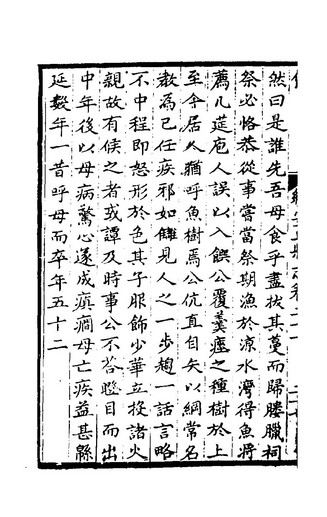 然曰是誰先吾母食乎盡拔其蔓而歸媵臘祠
祭必恪恭從事嘗當祭期漁於涼水灣得魚將
薦几筵庖人誤以入饌公覆羹瘞之種樹於上
至今居人猶呼魚樹焉公伉直自矢以綱常名
教為己任疾邪如讎見人之一步趨一話言略
不中程即怒形於色其子服飾少華立投諸火
親故有候之者或譚及時事公不答瞪目而出
中年後以母病驚心遂成瘨癇母亡疾益甚緜
延數年一昔呼母而卒年五十二